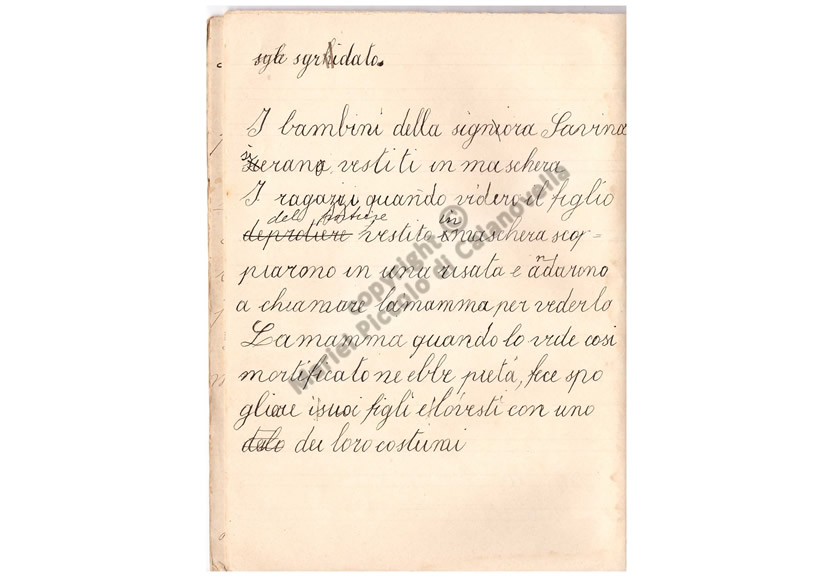 sgle sgridato.
I bambini della signora Savina
si erano vestiti in maschera
I ragazzi quando videro il figlio
del portiere in
deprotiere vestito maschera scop=
piarono in una risata e andarono
a chiamare lamamma per vederlo
Lamamma quando lo vide cosi
mortificato ne ebbe pietá, fece spo
gliare i suoi figli e lo vesti con uno
dei loro costumi
Copyright ©
Mariel Piccolo di Calanovella